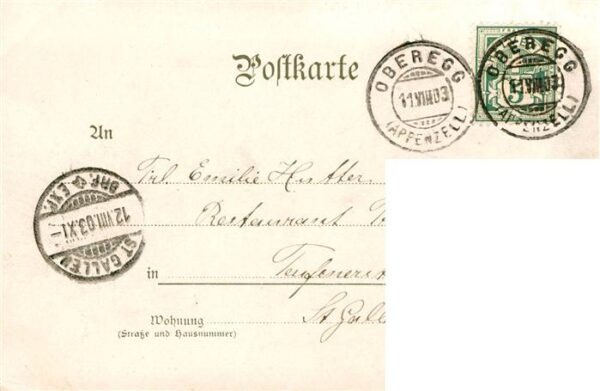 Postkarte
OBEREGG
(APPENZELL)
OBEREGG
(APPENZELL)
5
An
Frl. Emilie Hutter
Restaurant
BRF. EXP.
12.VIII.03.XI
ST GALLEN
in Teufenerst
Wohnung
St. Gall
(Straße und Hausnummer)